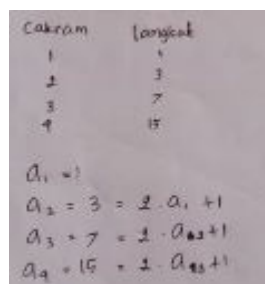 Cakram langkah
1 1
2 3
3 7
4 15
a₁ = 1
a₂ = 3 = 2 · a₁ + 1
a₃ = 7 = 2 · a₂ + 1
a₄ = 15 = 2 · a₃ + 1